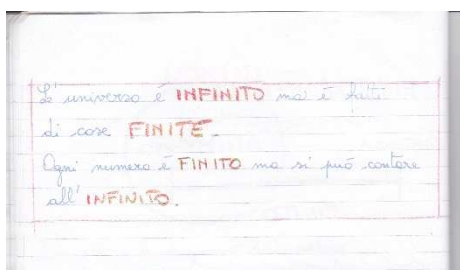 L'universo è INFINITO ma è fatto
di cose FINITE.
Ogni numero è FINITO ma si può contare
all'INFINITO.